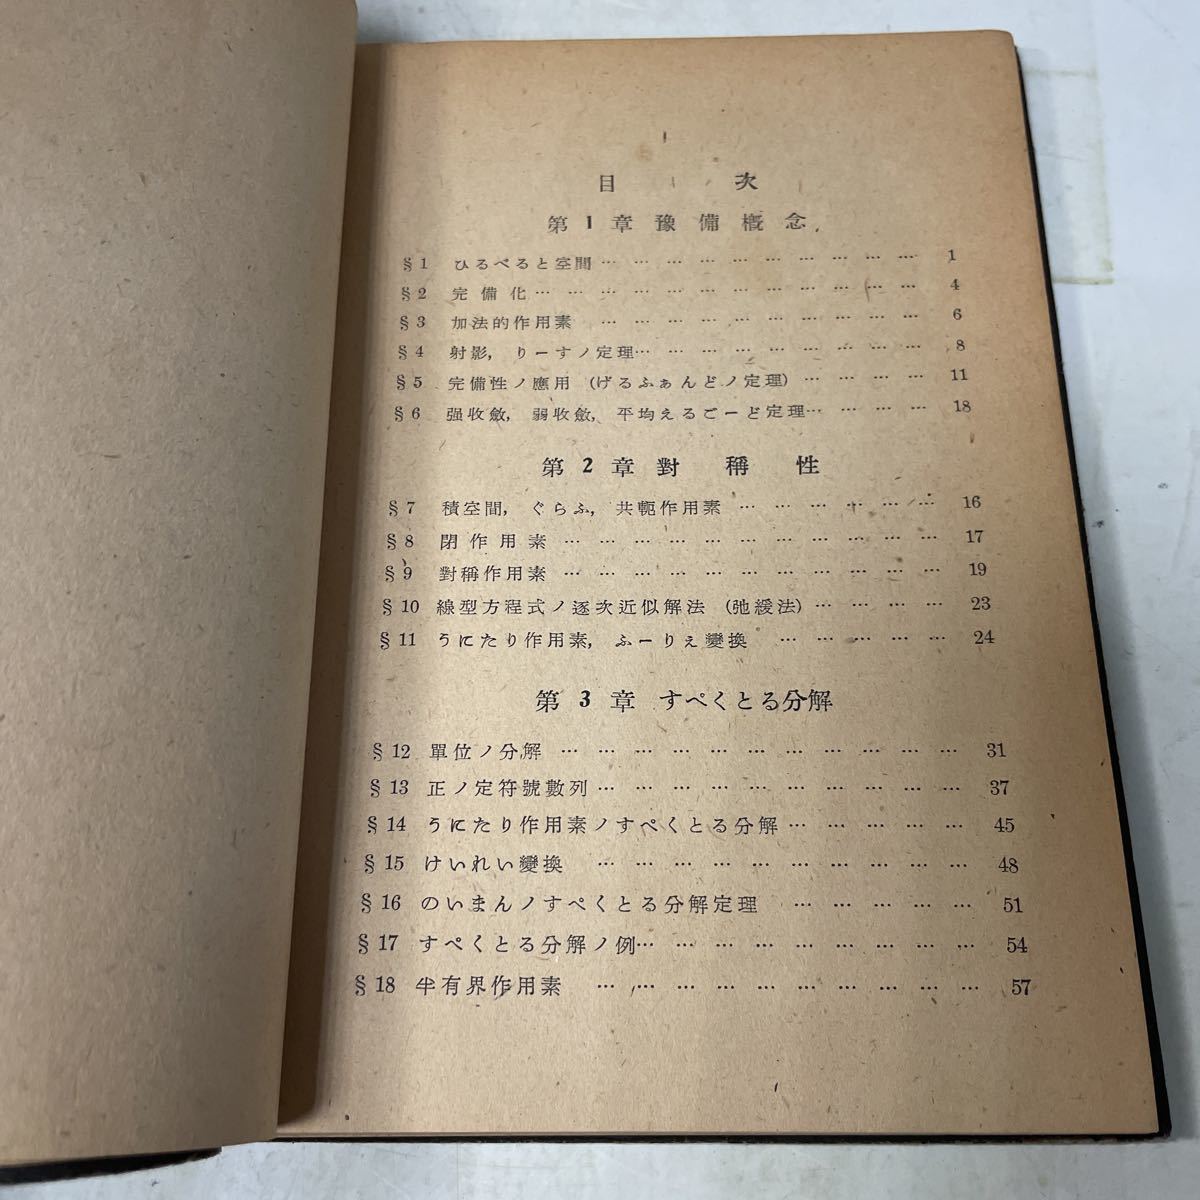 目次
第1章豫備概念
§1 ひるべると空間… … … … … … … … … … 1
§2 完備化… … … … … … … … … … … … 4
§3 加法的作用素 … … … … … … … … … … 6
§4 射影, りーすノ定理… … … … … … … … … 8
§5 完備性ノ應用 (げるふぁんどノ定理) … … … … 11
§6 强收斂, 弱收斂, 平均えるごーど定理… … … … 18
第2章對稱性
§7 積空間, ぐらふ, 共軛作用素 … … … … … … 16
§8 閉作用素 … … … … … … … … … … … 17
§9 對稱作用素 … … … … … … … … … … … 19
§10 線型方程式ノ逐次近似解法 (弛緩法)… … … … 23
§11 うにたり作用素, ふーりえ變換 … … … … … 24
第3章 すぺくとる分解
§12 單位ノ分解 … … … … … … … … … … … 31
§13 正ノ定符號數列… … … … … … … … … … 37
§14 うにたり作用素ノすぺくとる分解… … … … … 45
§15 けいれい變換 … … … … … … … … … … 48
§16 のいまんノすぺくとる分解定理 … … … … … 51
§17 すぺくとる分解ノ例… … … … … … … … … 54
§18 半有界作用素 … … … … … … … … … … 57